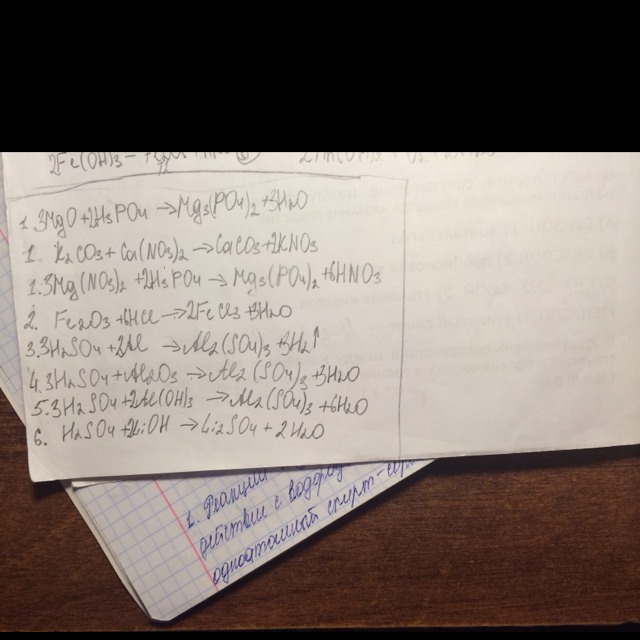 2Fe(OH)3 –
1. 3MgO + 2H3PO4 → Mg3(PO4)2 + 3H2O
1. K2CO3 + Ca(NO3)2 → CaCO3 + 2KNO3
1. 3Mg(NO3)2 + 2H3PO4 → Mg3(PO4)2 + 6HNO3
2. Fe2O3 + 6HCl → 2FeCl3 + 3H2O
3. 3H2SO4 + 2Al → Al2(SO4)3 + 3H2↑
4. 3H2SO4 + Al2O3 → Al2(SO4)3 + 3H2O
5. 3H2SO4 + 2Al(OH)3 → Al2(SO4)3 + 6H2O
6. H2SO4 + 2LiOH → Li2SO4 + 2H2O
действии с
одноатомный спирт